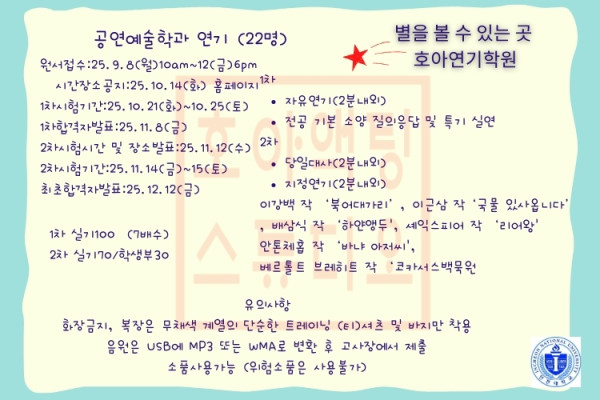 공연예술학과 연기 (22명)
별을 볼 수 있는 곳
호아연기학원
원서접수:25.9.8(월)10am~12(금)6pm
시간장소공지:25.10.14(화) 홈페이지
1차시험기간:25.10.21(화)~10.25(토)
1차합격자발표:25.11.8(금)
2차시험시간 및 장소발표:25.11.12(수)
2차시험기간:25.11.14(금)~15(토)
최초합격자발표:25.12.12(금)
1차 실기100 (7배수)
2차 실기70/학생부30
1차
• 자유연기(2분내외)
• 전공 기본 소양 질의응답 및 특기 실연
2차
• 당일대사(2분내외)
• 지정연기(2분내외)
이강백 작 ‘북어대가리’, 이근삼 작 ‘국물 있사옵니다’
, 배삼식 작 ‘하얀앵두’, 셰익스피어 작 ‘리어왕’
안톤체홉 작 ‘바냐 아저씨’,
베르톨트 브레히트 작 ‘코카서스백묵원
유의사항
화장금지, 복장은 무채색 계열의 단순한 트레이닝 (티)셔츠 및 바지만 착용
음원은 USB에 MP3 또는 WMA로 변환 후 고사장에서 제출
소품사용가능 (위험소품은 사용불가)
호아액팅
스튜디오
INCHEON NATIONAL UNIVERSITY
인천대학교